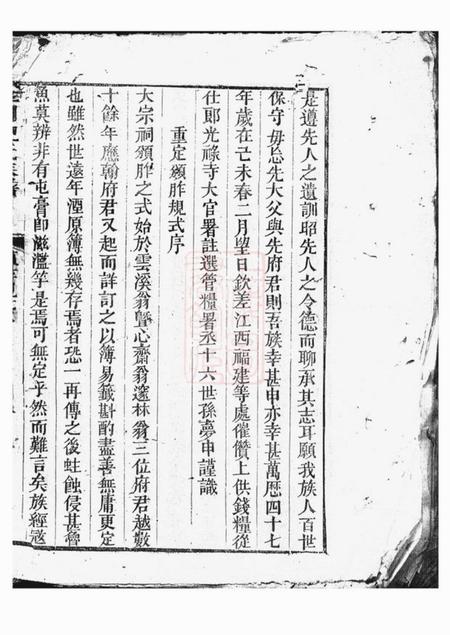 是遵先人之遺訓昭先人之令德而聊承其志耳願我族人百世
保守毋忘先大父與先府君則吾族幸甚申亦幸甚萬曆四十七
年歲在己未春二月望日欽差江西福建等處催儹上供錢糧從
仕郎光祿寺大官署註選管糧署丞十六世孫夢申謹識
重定頒胙規式序
大宗祠頒胙之式始於雲溪翁暨心齋翁邃林翁三位府君越數
十餘年應翰府君又起而詳訂之以簿易籤斟酌盡善無庸更定
也雖然世遠年湮原簿無幾存焉者恐一再傳之後蛀蝕侵甚魯
魚莫辨非有屯膏卽滋濫竽是焉可無定乎然而難言矣族經寇